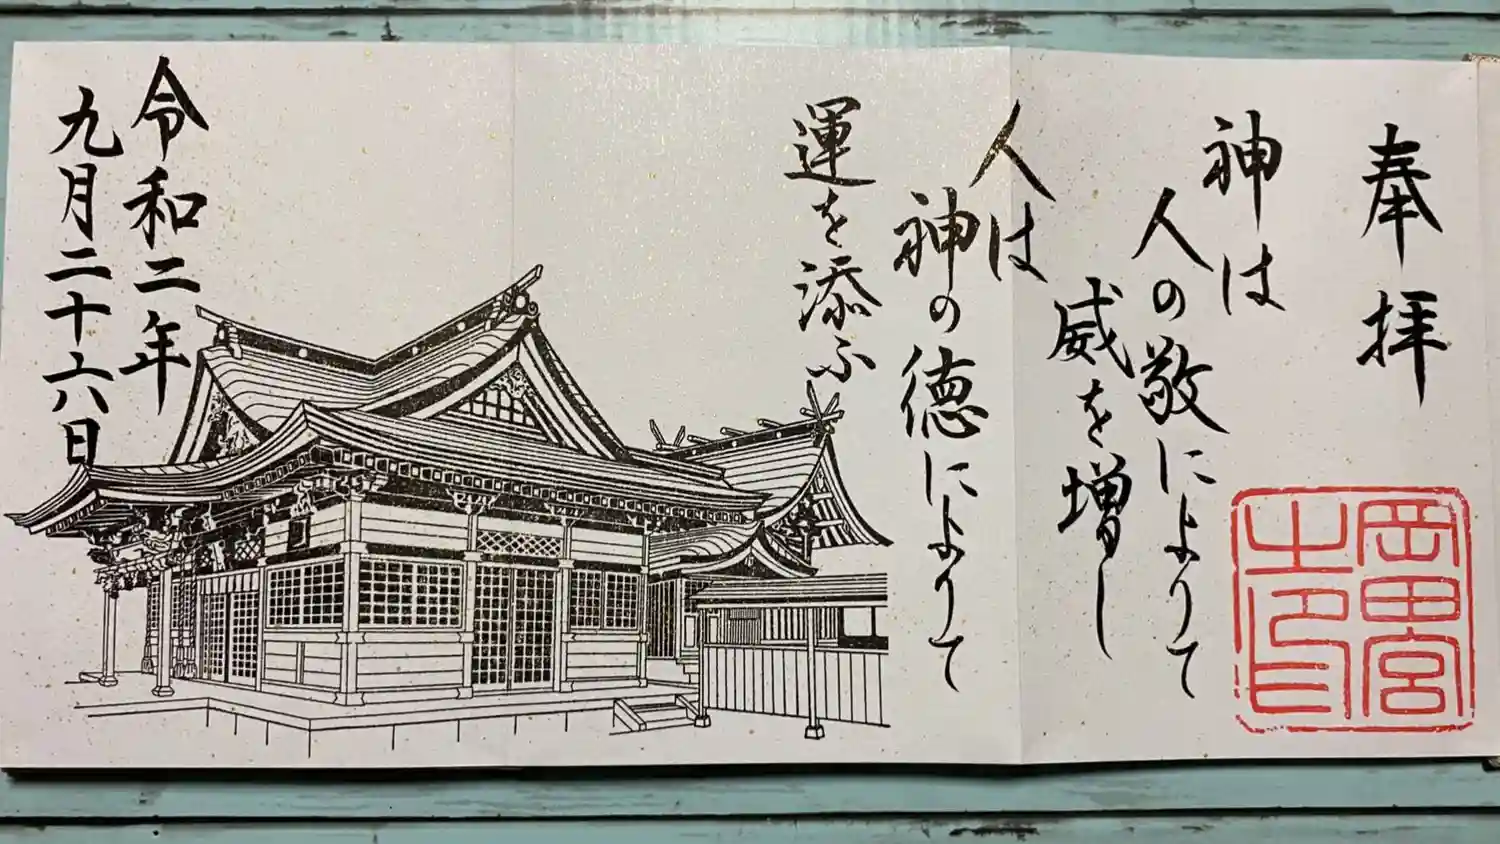 奉拝
神は
人の敬によりて
威を増し
人は
神の徳によりて
運を添ふ
令和二年
九月二十六日
岡田宮
之印